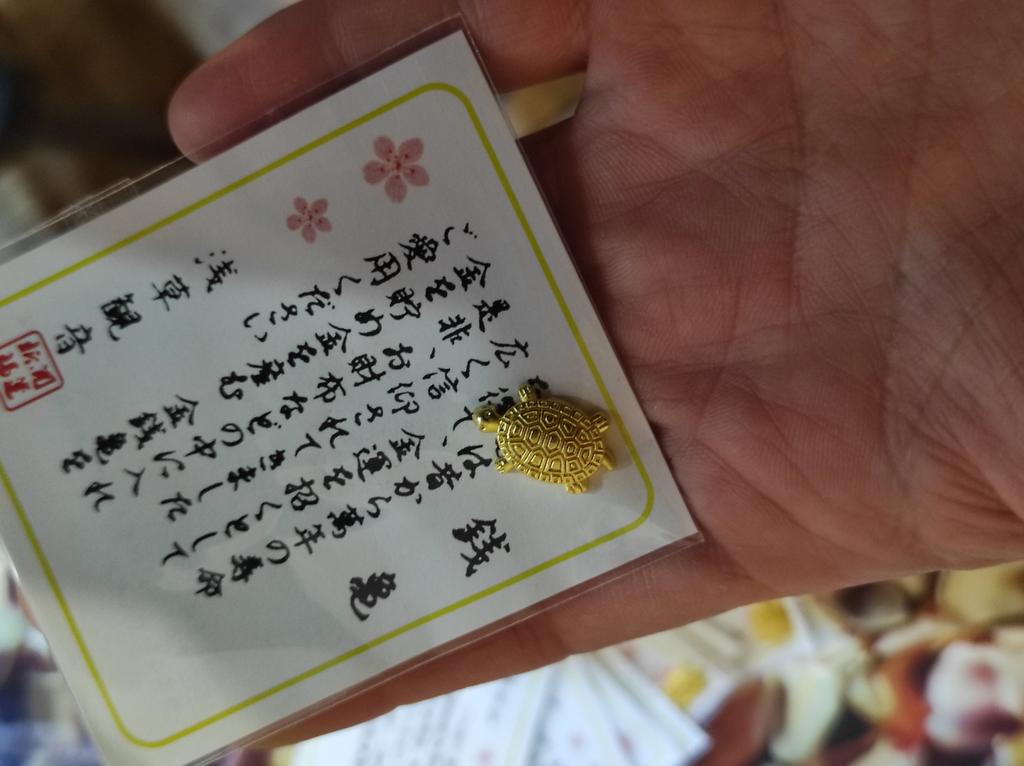 銭亀
は昔から萬年の寿命
得て、金運を招くとして
広く信仰されてきました
是非、お財布などの中に入れ
金を貯め金を産む金銭亀を
ご愛用ください
浅草観音